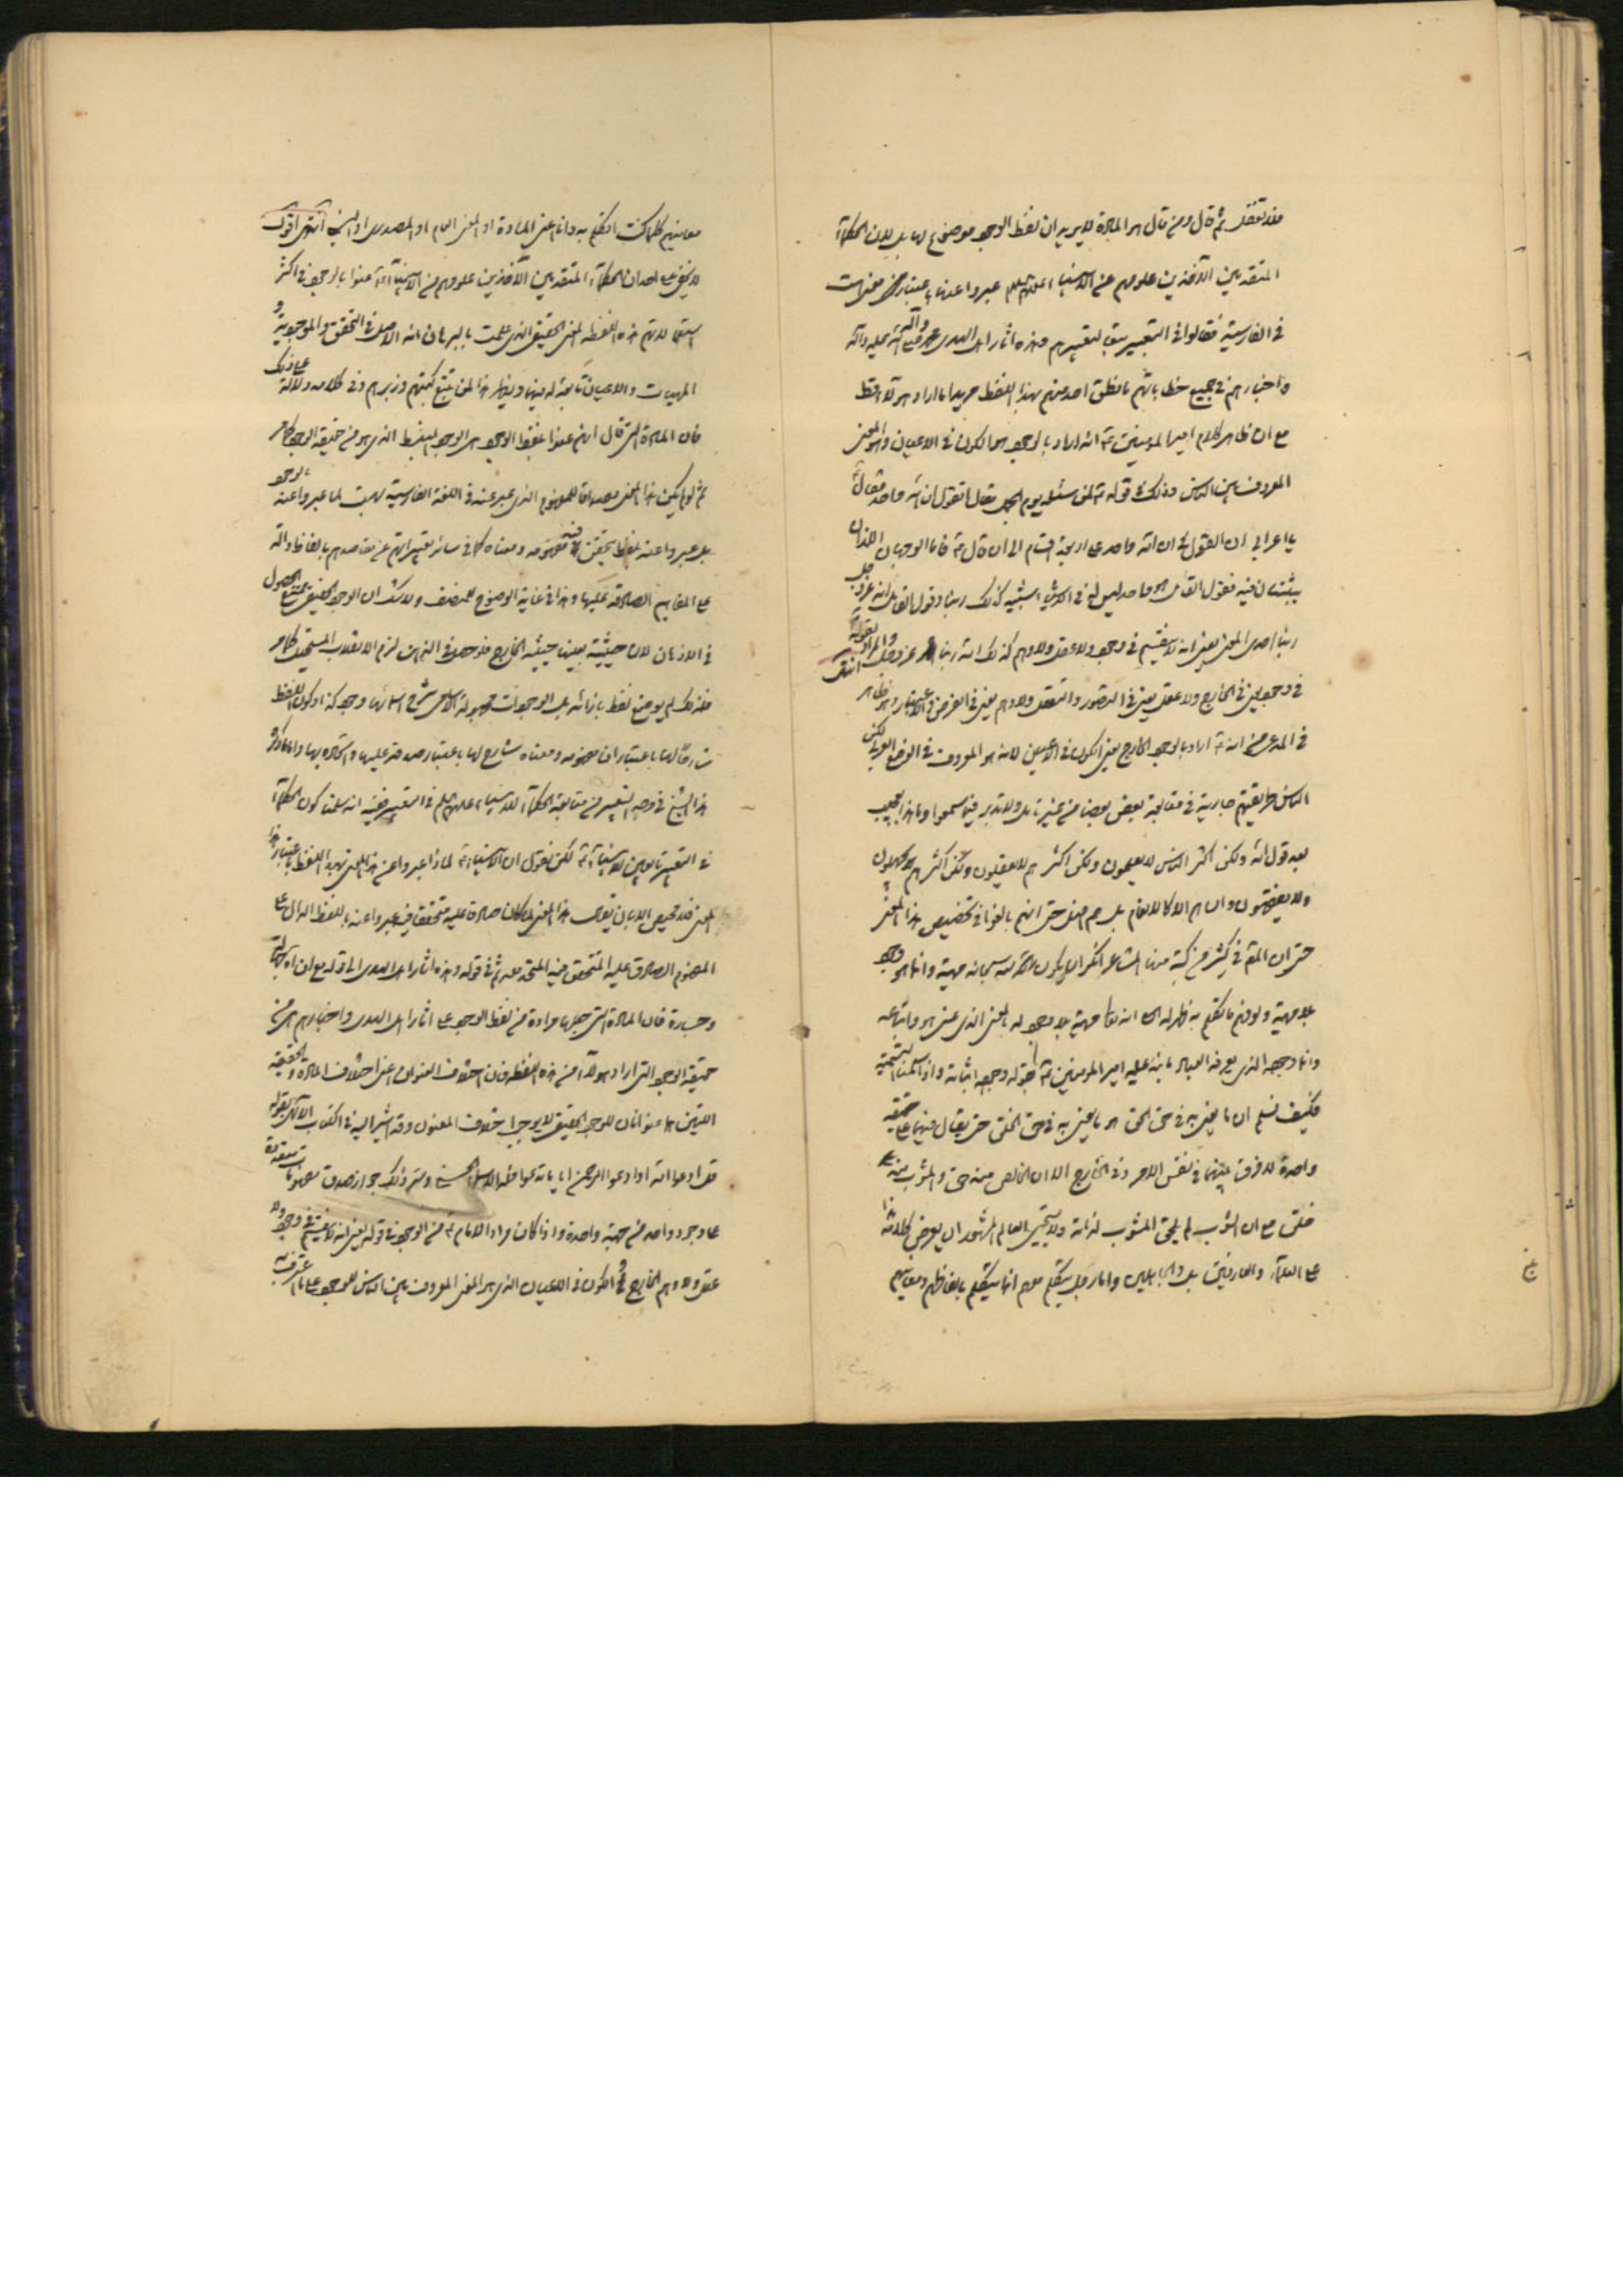 فقد تعقل ثم قال ومن قال هو المادة لا يريد ان لفظ الوجود موضوع لها بل لان الحكماء
المتقدمين الآخذين علومهم عن الانبياء عليهم السلم عبروا عنها باعتبار معنى هست
في الفارسية فقالوا في التعبير بتعبيرهم وهذه اثار اهل الهدى محمد واله صلى الله عليه وآله
واخبارهم في جميع خطاباتهم ما نطق احد منهم بهذا اللفظ مريدا ما اراد هؤلاء قط
مع ان ظاهر كلام امير المؤمنين ع انه اراد بالوجود هو الكون في الاعيان وهو المعنى
المعروف بين الناس وذلك في قوله ع لمن سئله يوم الجمل فقال اتقول ان الله واحد فقال
يا اعرابي ان القول في ان الله واحد على اربعة اقسام الى ان قال ع فاما الوجهان اللذان
يثبتان فيه فقول القائل هو واحد ليس له في الاشياء شبيه كذلك ربنا وقول القائل انه عز وجل
ربنا احدي المعنى يعني انه لا ينقسم في وجود ولا عقل ولا وهم كذلك الله ربنا عز وجل والمراد بقوله انتهى
في وجود يعني في الخارج ولا عقل يعني في التصور والتعقل ولا وهم يعني في الفرض والاعتبار وهو ظاهر
في المدعى من انه ع اراد بالوجود الخارج يعني الكون في الاعيان لانه هو المعروف في الوضع العربي لكن
الناس طريقتهم جارية في متابعة بعض بعضا من غير تأمل ولا تدبر فيما سمعوا وما هذا بعجيب
بعد قول الله ولكن اكثر الناس لا يعلمون ولكن اكثرهم لا يعقلون ولكن اكثرهم يجهلون
ولا يفقهون وان هم الا كالانعام بل هم اضل حتى انهم بالغوا في تخصيص هذا المعنى
حتى ان المص في كثير من كتبه منها المشاعر انكر ان يكون لله سبحانه مهية وانما هو وجود
بلا مهية ولو فهم ما تكلم به ظهر له انه تعالى مهية بلا وجود له بالمعنى الذي عنى هو واتباعه
وانما وجوده الذي يعرفه العباد ما نبه عليه امير المؤمنين ع بقوله وجوده اثباته واذا سلمنا التسمية
فكيف نسلم ان ما يعنى به في حق الحق هو ما يعنى به في حق الخلق حتى يقال فيهما على حقيقة
واحدة لا فرق بينهما في نفس الامر وفي الخارج الا ان الخالص منه حق والمشوب منه
خلق مع ان الشوب لم يلحق المشوب لذاته ولا يستحيي العالم المشهور ان يعرض كلامه هذا
على العلماء والعارفين بل والجاهلين وانا رجل يتكلم معهم انما يتكلم بالفاظهم ومعانيهم
معانيهم كلما كنت اتكلم به وانا اعني المادة او المعنى العام او المصدري او النسبي انتهى اقول
لا يخفى على احد ان الحكماء المتقدمين الآخذين علومهم من الانبياء ع انما عنوا بالوجود في اكثر
استعمالاتهم هذه اللفظة المعنى الحقيقي الذي علمت بالبرهان انه الاصل في التحقق والموجودية و
المهيات والاعيان تابعة له فيها ويظهر هذا لمن تتبع كتبهم وزبرهم وفي كلامه دلالة على ذلك
فان المادة التي قال انهم عنوا بلفظ الوجود هي الوجود المنبسط الذي هو من حقيقة الوجود كما مر
ثم لو لم يكن هذا المعنى مصداقا للمفهوم الذي عبر عنه في اللغة الفارسية بهست لما عبروا عنه بالوجود
بل عبروا عنه بلفظ يتحقق فيه مفهومه ومعناه كما في سائر تعبيراتهم عن مقاصدهم بالفاظ دالة
على المفاهيم الصادقة عليها وهذا في غاية الوضوح للمنصف ولا شك ان الوجود الحقيقي ممتنع الحصول
في الاذهان لان حيثيته بعينها حيثية الخارج فلو حصل في الذهن لزم الانقلاب المستحيل كما مر
فلذلك لم يوضع لفظ بازائه بل الوجودات مجهولة الاسامي شرح اسمائها وجود كذا وكون اللفظ
شارحا لها باعتبار ان مفهومه ومعناه شارح لها باعتبار صدقه عليها واتحاده بها واما ما ذكره
هذا الشيخ في وجه التعبير من متابعة الحكماء للانبياء عليهم السلم في التعبير ففيه انه سلمنا كون الحكماء
في التعبير تابعين للانبياء ع لكن نقول ان الانبياء ع لماذا عبروا عن هذا المعنى بهذا اللفظ باعتبار هذا
المعنى فلا محيص الا بان يقول هذا المعنى لما كان صادقا عليه متحققا فيه عبروا عنه باللفظ الدال على
المفهوم الصادق عليه المتحقق فيه المتحد معه ثم في قوله وهذه اثار اهل الهدى الى قوله مع ان اه جهالة
وجسارة فان المادة التي جعلها مرادة من لفظ الوجود على اثار اهل الهدى واخبارهم هي من
حقيقة الوجود التي اراد هؤلاء من هذه اللفظة فان اختلاف العنوان اعني اختلاف المادة والحقيقة
اللتين هما عنوانان للوجود الحقيقي لا يوجب اختلاف المعنون وقد اشير اليه في الكتاب الالهي بقوله
قل ادعوا الله او ادعوا الرحمن ايا ما تدعوا فله الاسماء الحسنى وسر ذلك جواز صدق مفهومات متعددة
على وجود واحد من جهة واحدة واذا كان مراد الامام ع من الوجود في قوله يعني انه لا ينقسم في وجود ولا
عقل ولا وهم الخارج والكون في الاعيان الذي هو المعنى المعروف بين الناس للوجود على ما اعترف به